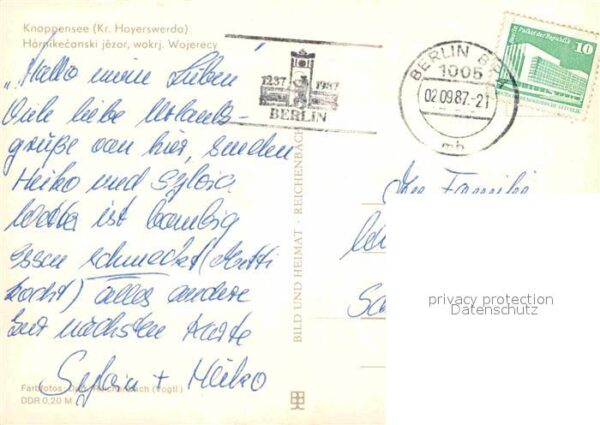 Knappensee (Kr. Hoyerswerda)
Hórnikečanski jězor, wokrj. Wojerecy
"Hallo meine Lieben
Viele liebe Urlaubs-
grüße von hier, senden
Heiko und Sylvia.
Wetter ist
Essen schmeckt (Mutti
kocht) alles andere
zur nächsten Karte
Sylvia + Heiko
Farbfotos: Reichenbach (Vogtl.)
DDR 0,20 M
BILD UND HEIMAT · REICHENBACH
1237 1987
BERLIN
BERLIN
1005
02.09.87.-21
mb
Berlin Palast der Republik
10
An Familie
privacy protection
Datenschutz